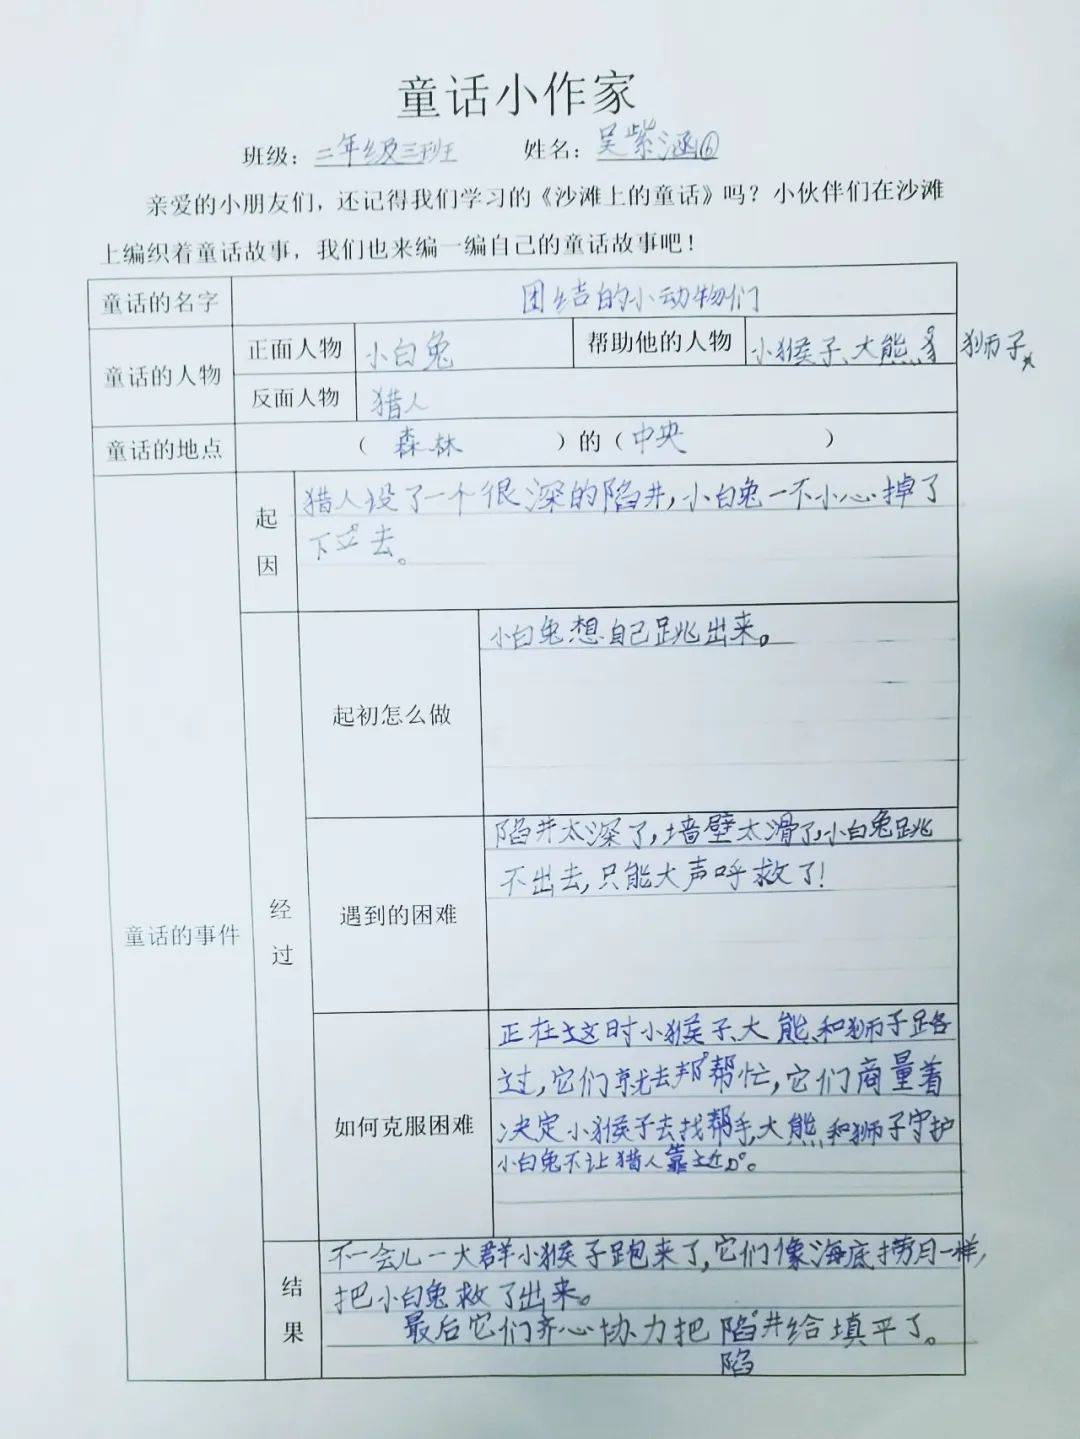 童话小作家
班级：二年级三班 姓名：吴紫涵⑥
亲爱的小朋友们，还记得我们学习的《沙滩上的童话》吗？小伙伴们在沙滩
上编织着童话故事，我们也来编一编自己的童话故事吧！
童话的名字 团结的小动物们
童话的人物 正面人物 小白兔 帮助他的人物 小猴子、大熊、狮子
反面人物 猎人
童话的地点 （森林）的（中央）
童话的事件
起因
猎人设了一个很深的陷井，小白兔一不小心掉了
下去。
经过
起初怎么做
小白兔想自己跳出来。
遇到的困难
陷井太深了，墙壁太滑了，小白兔跳
不出去，只能大声呼救了！
如何克服困难
正在这时小猴子、大熊、和狮子路各
过，它们就去帮忙，它们商量着
决定小猴子去找帮手，大熊和狮子守护
小白兔不让猎人靠近。
结果
不一会儿一大群小猴子跑来了，它们像海底捞月一样，
把小白兔救了出来。
最后它们齐心协力把陷井给填平了。
陷